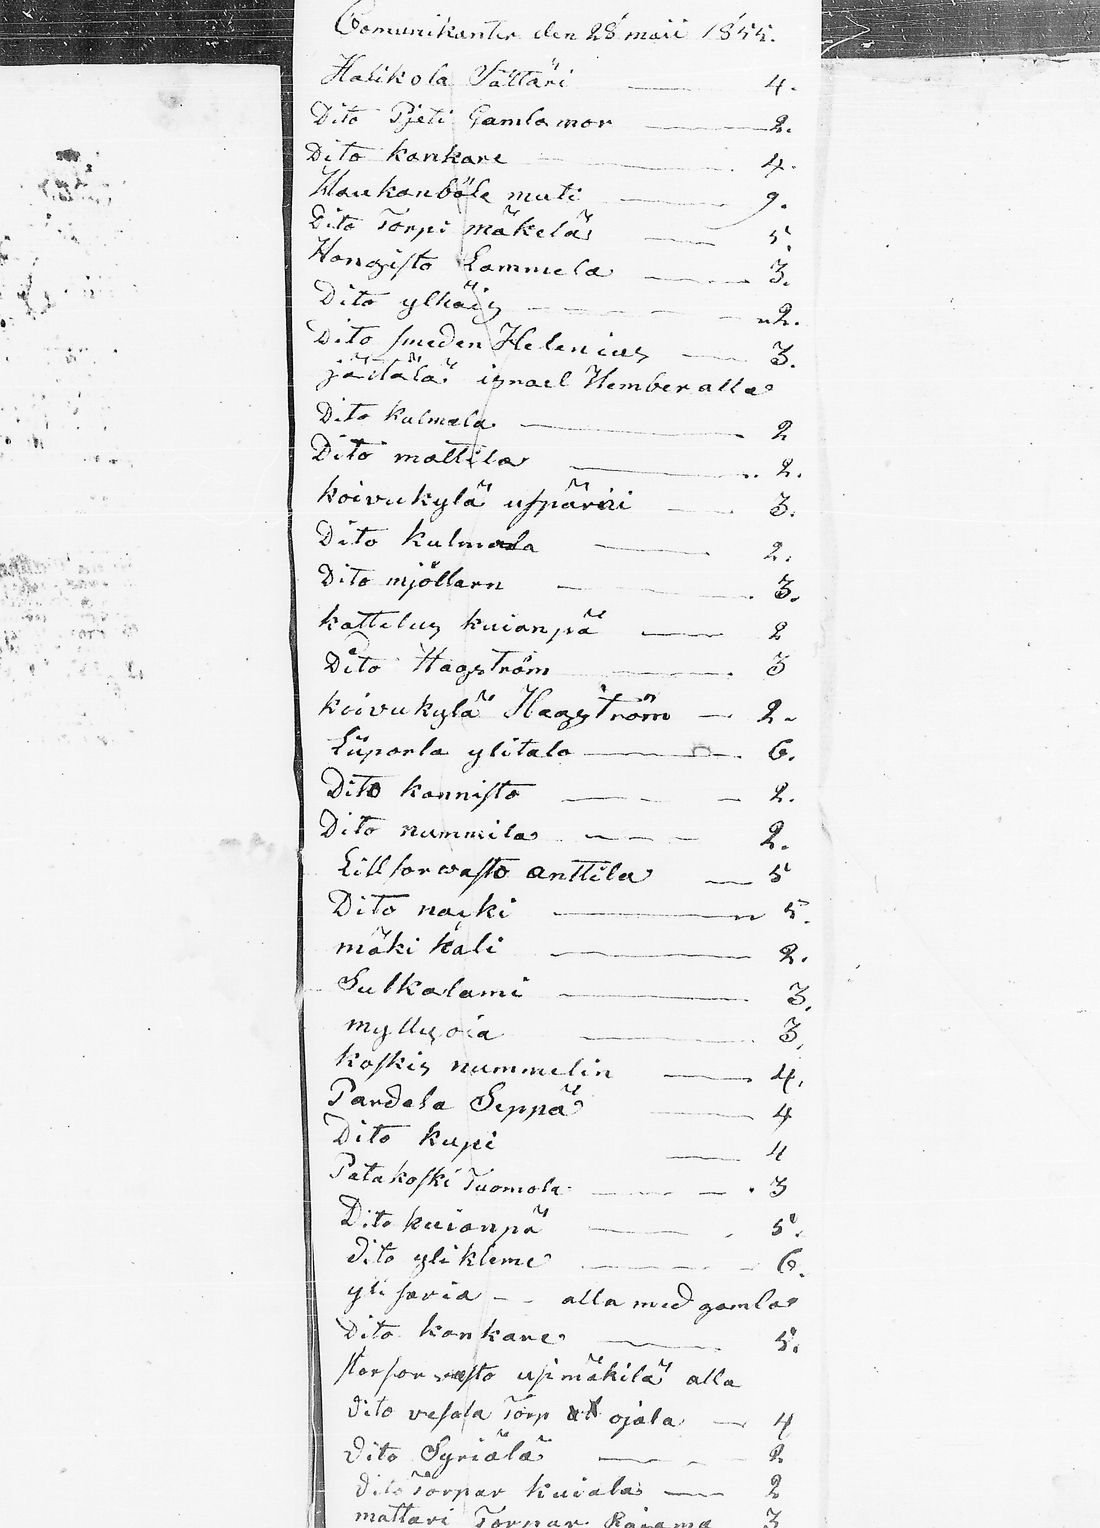 Comunikanter den 28 maii 1855.
Halikola Sättäri 4.
Dito Pjeti Gamla mor 2.
Dito kankare 4.
Haukanböle muti 9.
Dito Torpi mäkelä 5.
Hongisto Lammela 3.
Dito ylhäis 2.
Dito smeden Helenius 3.
jäilälä israel Hember alla
Dito kulmala 2
Dito mattila 2.
koivukylä uspäri 3.
Dito kulmala 2.
Dito mjöllarn 3.
kattelus kuianpä 2
Dito Hagström 3
koivukylä Hagström 2.
Liiparla ylitalo 6.
Dito kannisto 2.
Dito nummila 2.
Lillforwasto anttila 5
Dito naski 5.
mäki kali 2.
Sulkalami 3.
myllyoia 3.
koskis nummelin 4.
Pardala Seppä 4
Dito kupi 4
Patakoski Tuomola 3
Dito kuianpä 5.
dito ylikleme 6.
yli soria alla med gamla
Dito kankare 5.
storforwasto usimäkilä alla
dito vesala Torp ojala 4
Dito Syriälä 2
dito Torpar kuiala 2
mattari Torpar Rajama 3